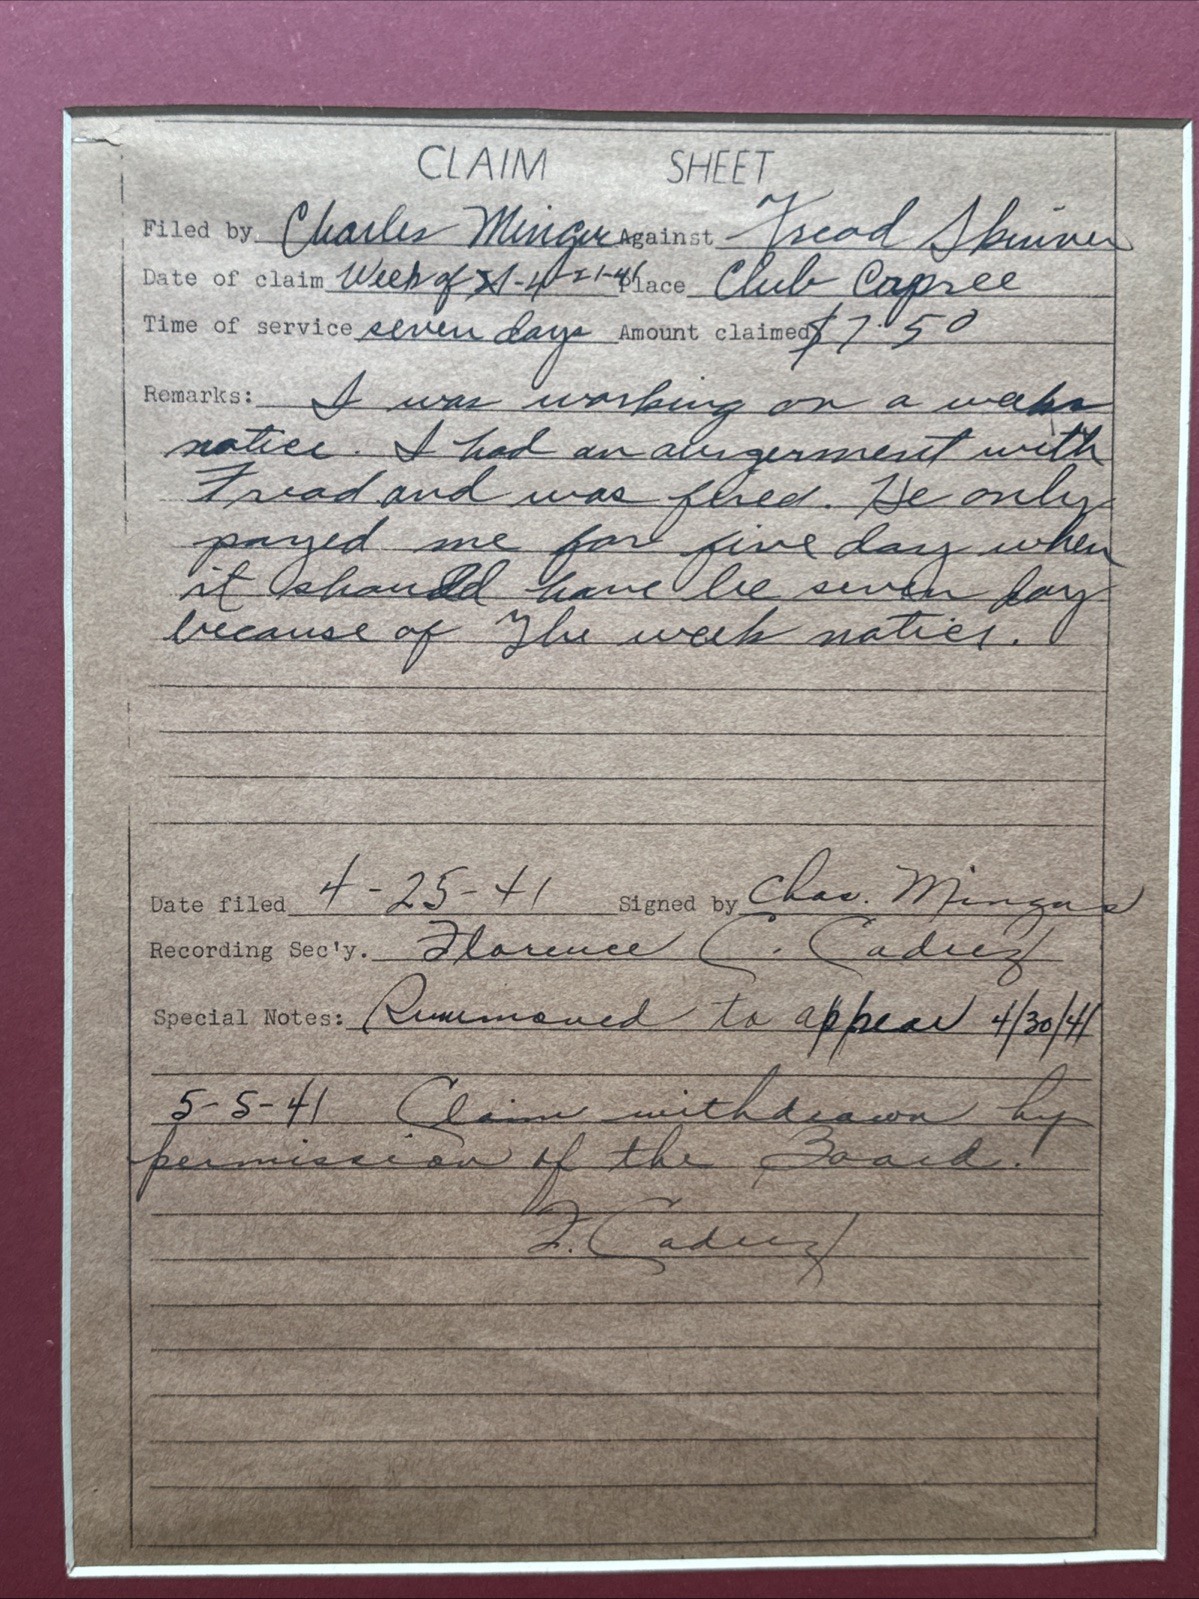 CLAIM SHEET
Filed by Charles Mingus Against Fread Skinner
Date of claim Week of 4-21-41 Place Club Capree
Time of service seven days Amount claimed $7.50
Remarks: I was working on a weeks
notice. I had an with
Fread and was fired. He only
payed me for five day when
it should have be seven day
because of The week notice.
Date filed 4-25-41 Signed by Chas. Mingus
Recording Sec'y. Florence C. Cadrez
Special Notes: Summoned to appear 4/30/41
5-5-41 Claim withdrawn by
permission of the Board.
F. Cadrez